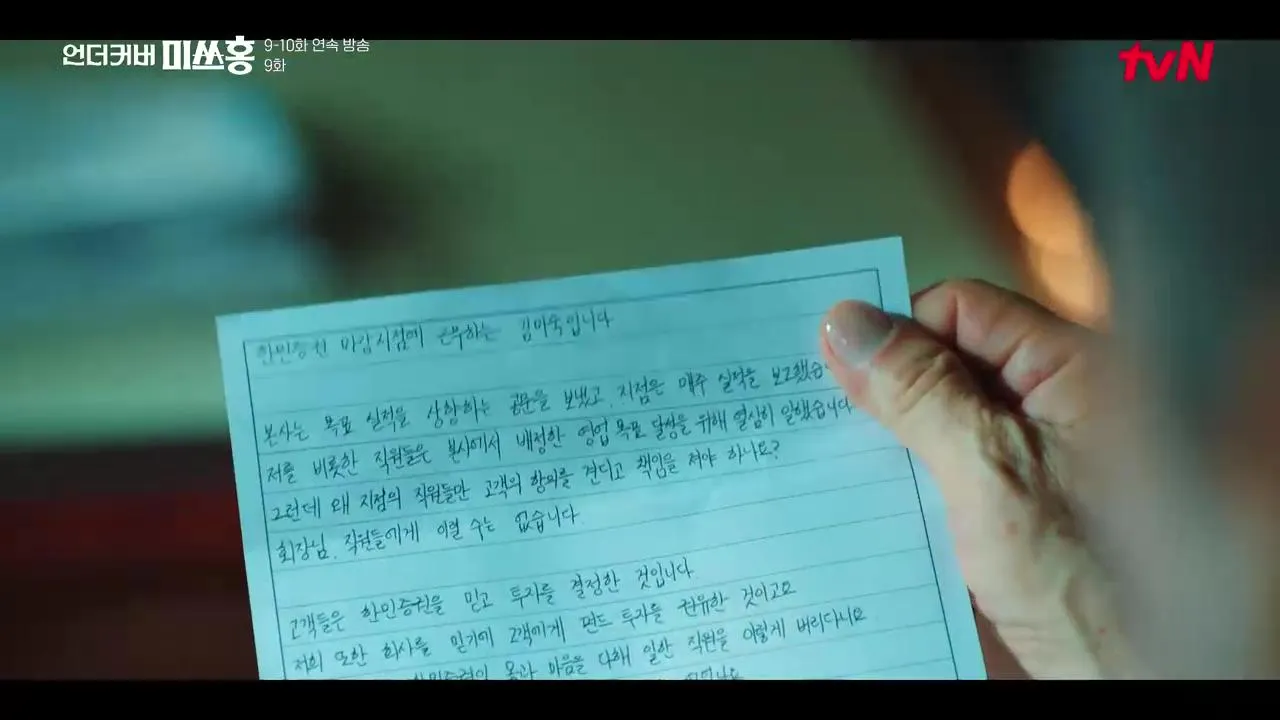 언더커버 미쓰홍
9-10화 연속 방송
9화
tvN
한민증권 마감지점에 근무하는 김미숙입니다
본사는 목표 실적을 상향하는 공문을 보냈고, 지점은 매주 실적을 보고했습
저를 비롯한 직원들은 본사에서 배정한 영업 목표 달성을 위해 열심히 일했습니다
그런데 왜 지점의 직원들만 고객의 항의를 견디고 책임을 져야 하나요?
회장님. 직원들에게 이럴 수는 없습니다.
고객들은 한민증권을 믿고 투자를 결정한 것입니다.
저희 또한 회사를 믿기에 고객에게 펀드 투자를 권유한 것이고요
몸과 마음을 다해 일한 직원을 이렇게 버리다니요